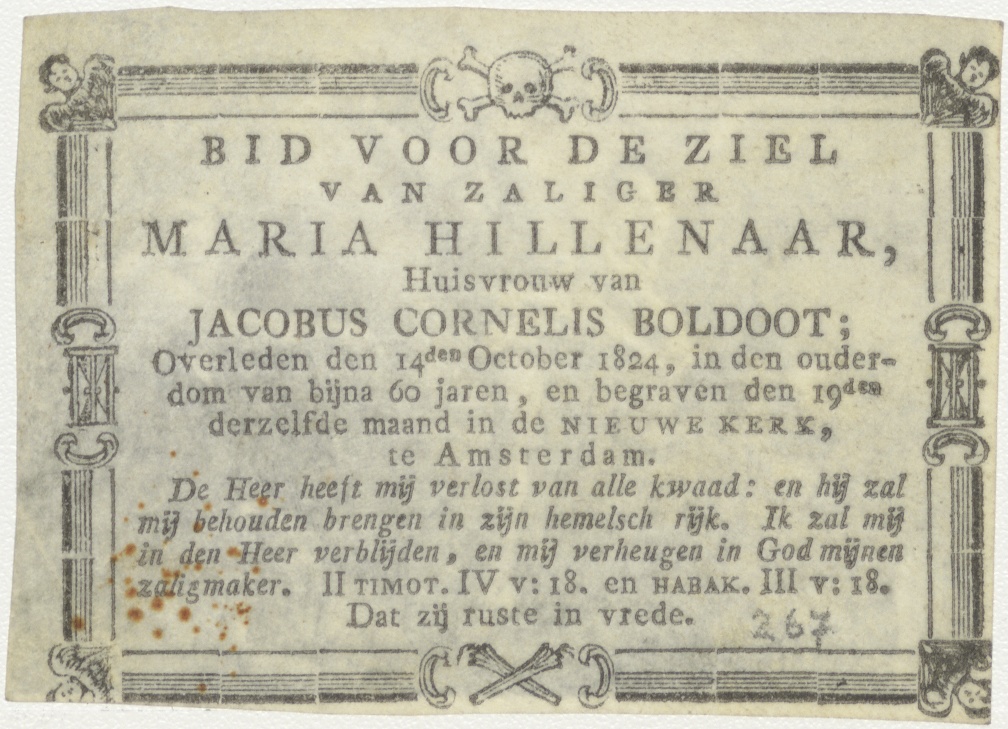 BID VOOR DE ZIEL
VAN ZALIGER
MARIA HILLENAAR,
Huisvrouw van
JACOBUS CORNELIS BOLDOOT;
Overleden den 14den October 1824, in den ouder-
dom van bijna 60 jaren, en begraven den 19den
derzelfde maand in de NIEUWE KERK,
te Amsterdam.
De Heer heeft mij verlost van alle kwaad: en hij zal
mij behouden brengen in zijn hemelsch rijk. Ik zal mij
in den Heer verblijden, en mij verheugen in God mijnen
zaligmaker. II TIMOT. IV v: 18. en HABAK. III v: 18.
Dat zij ruste in vrede.
267